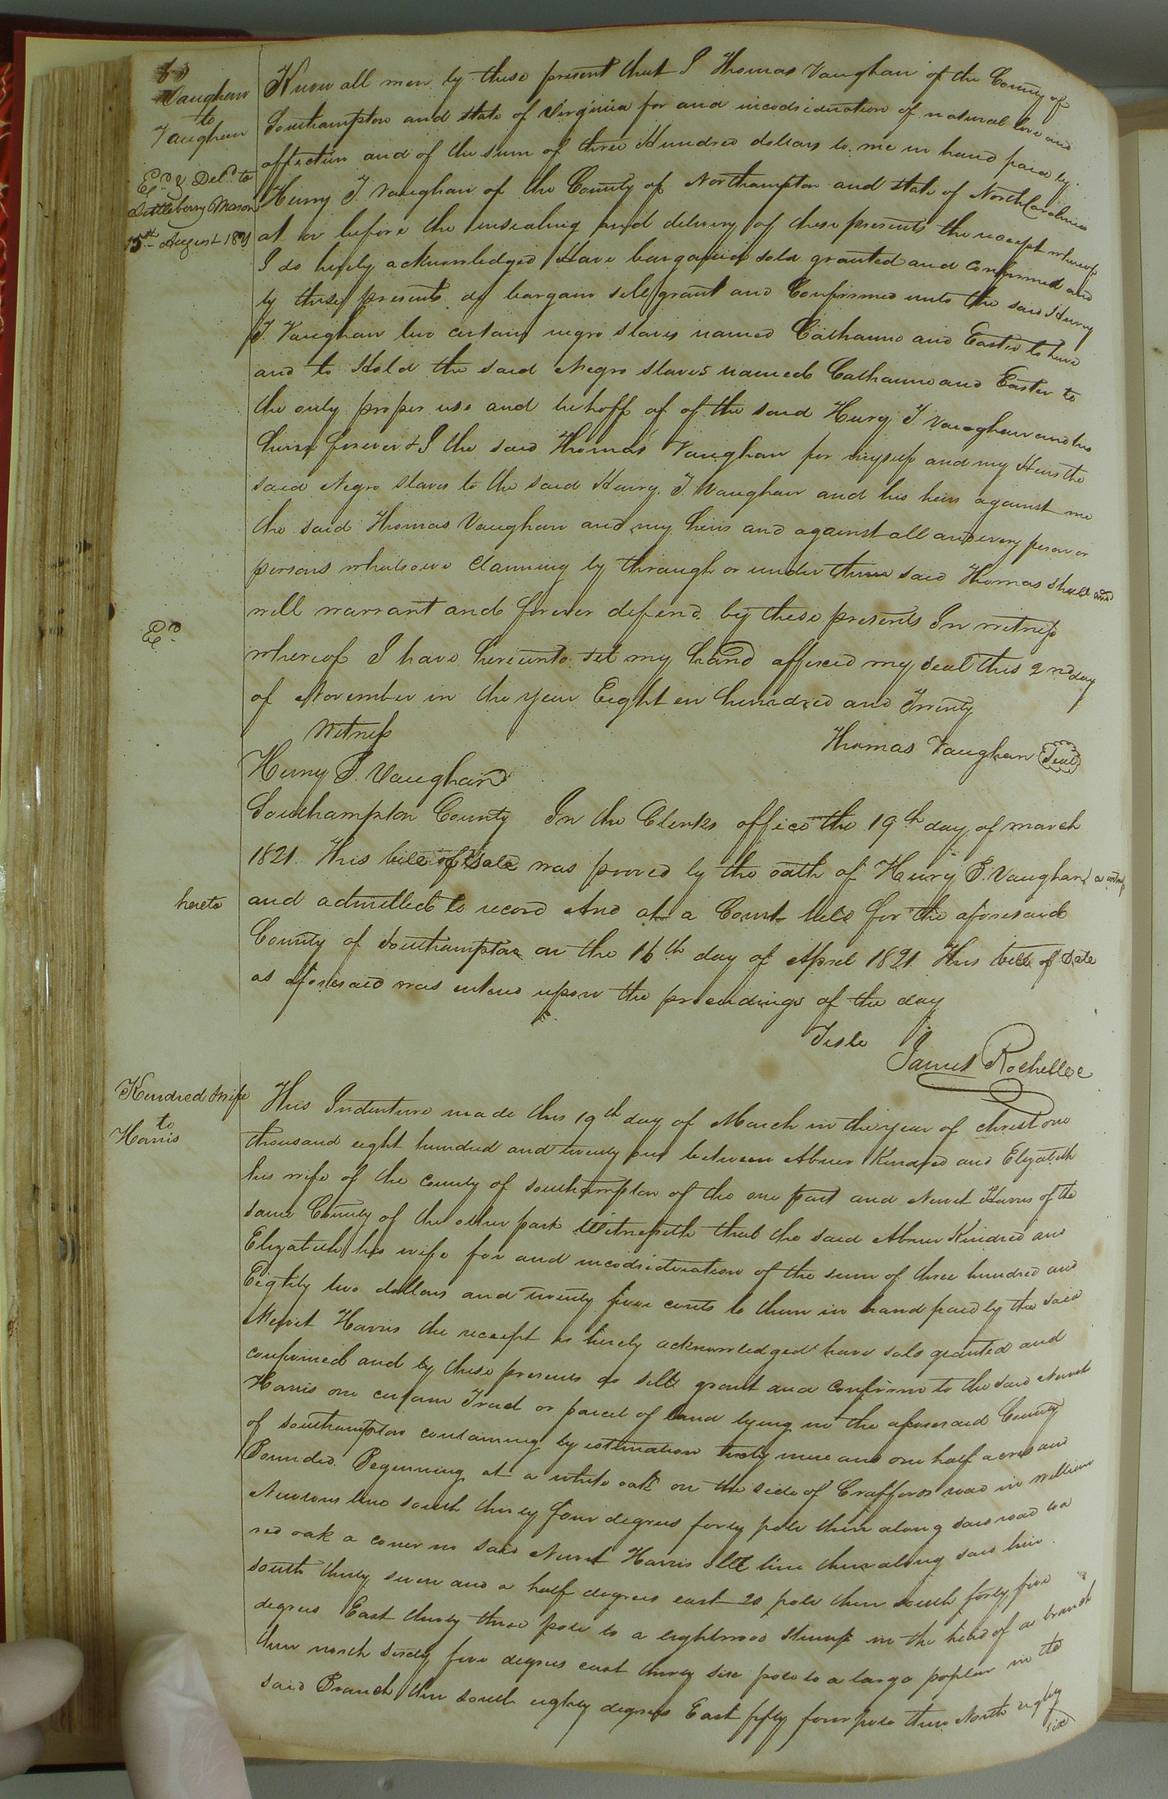 Vaughan
to
Vaughan
Ex.d & Del.d to
Littleberry Mason
15th August 18
Know all men by these present that I Thomas Vaughan of the County of
Southampton and state of Virginia for and inconsideration of natural love and
affection and of the sum of three Hundred dollars to me in hand paid by
Henry T Vaughan of the County of Northampton and state of North Carolina
at or before the ensealing and delivery of these presents the receipt whereof
I do hereby acknowledged Have bargained sold granted and confirmed and
by these presents do bargain sell grant and Confirmed unto the said Henry
T. Vaughan two certain negro slaves named Cathanne and Easter to have
and to Hold the said Negro slaves named Cathanne and Easter to
the only proper use and behoff of of the said Henry T Vaughan and his
heirs forever & I the said Thomas Vaughan for myself and my Heirs the
said Negro slaves to the said Henry. T. Vaughan and his heirs against me
the said Thomas Vaughan and my heirs and against all and every person or
persons whatsoever Claiming by through or under said Thomas shall and
will warrant and forever defend by these presents In witness
whereof I have hereunto set my hand affixed my seal this 2nd day
of November in the year Eighteen hundred and Twenty
Ex.d
Witness
Thomas Vaughan Seal
Henry P. Vaughan
Southampton County In the Clerks office the 19th day of march
1821. This bill of Sale was proved by the oath of Henry P. Vaughan a witness
hereto
and admitted to record And at a Court held for the aforesaid
County of Southampton on the 16th day of April 1821. This bill of Sale
as aforesaid was entered upon the proceedings of the day
Teste James Rochelle
Kindred & wife
to
Harris
This Indenture made this 19th day of March in the year of christ one
thousand eight hundred and twenty one between Abner Kindred and Elizabeth
his wife of the county of southampton of the one part and Newit Harris of the
same County of the other part Witnesseth that the said Abner Kindred and
Elizabeth his wife for and inconsideration of the sum of three hundred and
Eighty two dollars and twenty five cents to them in hand paid by the said
Newit Harris the receipt is hereby acknowledged have sold granted and
confirmed and by these presents do sell grant and confirm to the said Newit
Harris one certain Tract or parcel of land lying in the aforesaid County
of southampton containing by estimation nine and one half acres and
Bounded. Beginning at a white oak on the side of Crafford road in William
Newsoms line south thirty four degrees forty pole then along said road to a
red oak a corner in said Newit Harris line then along said line
south thirty seven and a half degrees east 20 pole then south forty five
degrees East thirty three pole to a lightwood stump in the head of a branch
then north sixty five degrees east thirty six pole to a large poplar in the
said Branch then south eighty degrees East fifty four pole then North eighty
six